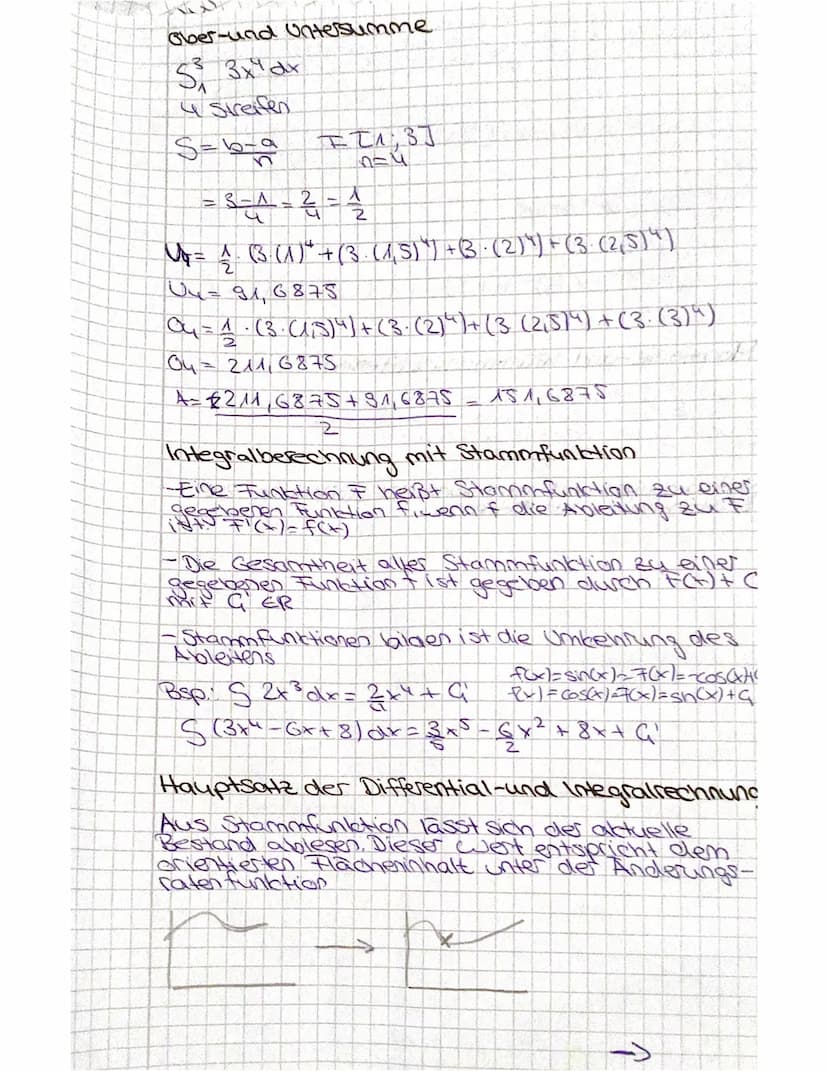 Ober-und Untersumme
∫₁³ 3x⁴ dx
4 Streifen
S = b-a/n   I = [1; 3]
n=4
= 3-1/4 = 2/4 = 1/2
U₄ = 1/2 · (3·(1)⁴ + (3·(1,5)⁴) + (3·(2)⁴) + (3·(2,5)⁴)
U₄ = 91,6875
O₄ = 1/2 · (3·(1,5)⁴) + (3·(2)⁴) + (3 (2,5)⁴) + (3·(3)⁴)
O₄ = 211,6875
A = 211,6875 + 91,6875 / 2 = 151,6875
Integralberechnung mit Stammfunktion
-Eine Funktion F heißt Stammfunktion zu einer
gegebenen Funktion f, wenn f die Ableitung zu F
ist: F'(x) = f(x)
-Die Gesamtheit aller Stammfunktion zu einer
gegebenen Funktion f ist gegeben durch F(x) + C
mit C ∈ R
-Stammfunktionen bilden ist die Umkehrung des
Ableitens
f(x)=sin(x)→F(x)=-cos(x)+C
Bsp.: ∫ 2x³ dx = 2/4 x⁴ + C   f(x)=cos(x)→F(x)=sin(x)+C
∫ (3x⁴ - 6x + 8) dx = 3/5 x⁵ - 6/2 x² + 8x + C
Hauptsatz der Differential-und Integralrechnung
Aus Stammfunktion lässt sich der aktuelle
Bestand ablesen. Dieser Wert entspricht dem
orientierten Flächeninhalt unter der Änderungs-
ratenfunktion